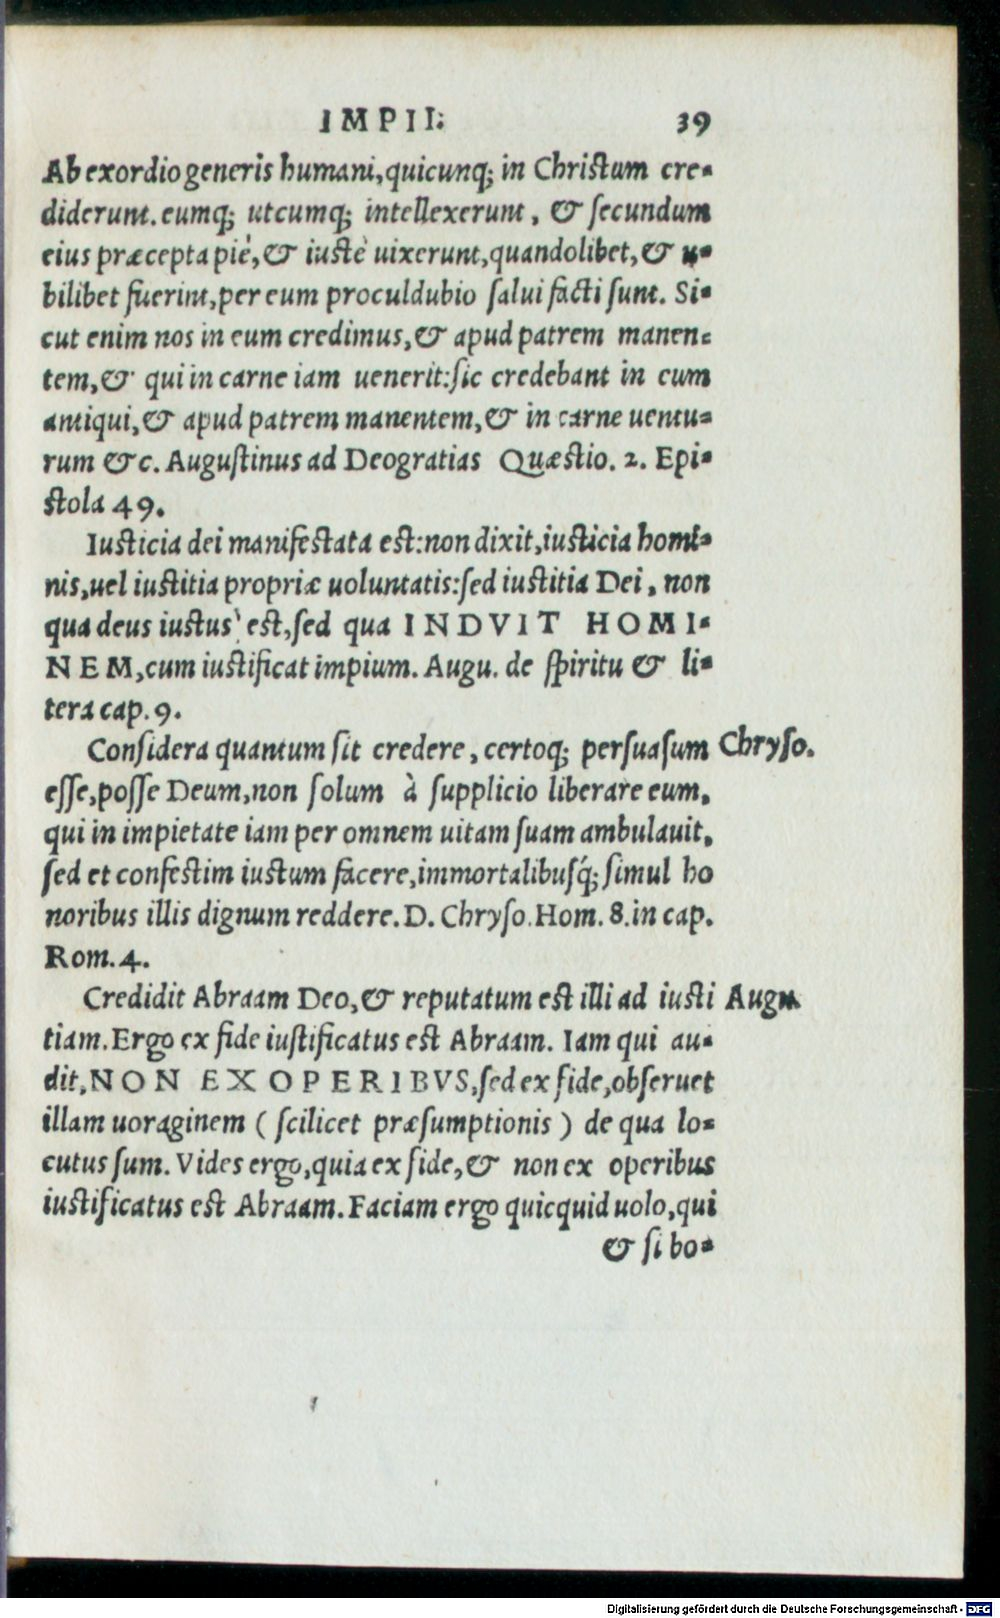 IMPII. 39
Ab exordio generis humani, quicunq; in Christum cre-
diderunt. eumq; utcumq; intellexerunt, & secundum
eius præcepta piè, & iustè uixerunt, quandolibet, & u-
bilibet fuerint, per eum proculdubio salui facti sunt. Si-
cut enim nos in eum credimus, & apud patrem manen-
tem, & qui in carne iam uenerit: sic credebant in eum
antiqui, & apud patrem manentem, & in carne uentu-
rum &c. Augustinus ad Deogratias Quæstio. 2. Epi-
stola 49.
Iusticia dei manifestata est: non dixit, iusticia homi-
nis, uel iustitia propriæ uoluntatis: sed iustitia Dei, non
qua deus iustus est, sed qua INDVIT HOMI-
NEM, cum iustificat impium. Augu. de spiritu & li-
tera cap. 9.
Considera quantum sit credere, certoq; persuasum Chryso.
esse, posse Deum, non solum à supplicio liberare eum,
qui in impietate iam per omnem uitam suam ambulauit,
sed et confestim iustum facere, immortalibusq́; simul ho
noribus illis dignum reddere. D. Chryso. Hom. 8. in cap.
Rom. 4.
Credidit Abraam Deo, & reputatum est illi ad iusti Augu.
tiam. Ergo ex fide iustificatus est Abraam. Iam qui au-
dit, NON EX OPERIBVS, sed ex fide, obseruet
illam uoraginem (scilicet præsumptionis) de qua lo-
cutus sum. Vides ergo, quia ex fide, & non ex operibus
iustificatus est Abraam. Faciam ergo quicquid uolo, qui
& si bo-
Digitalisierung gefördert durch die Deutsche Forschungsgemeinschaft - DFG